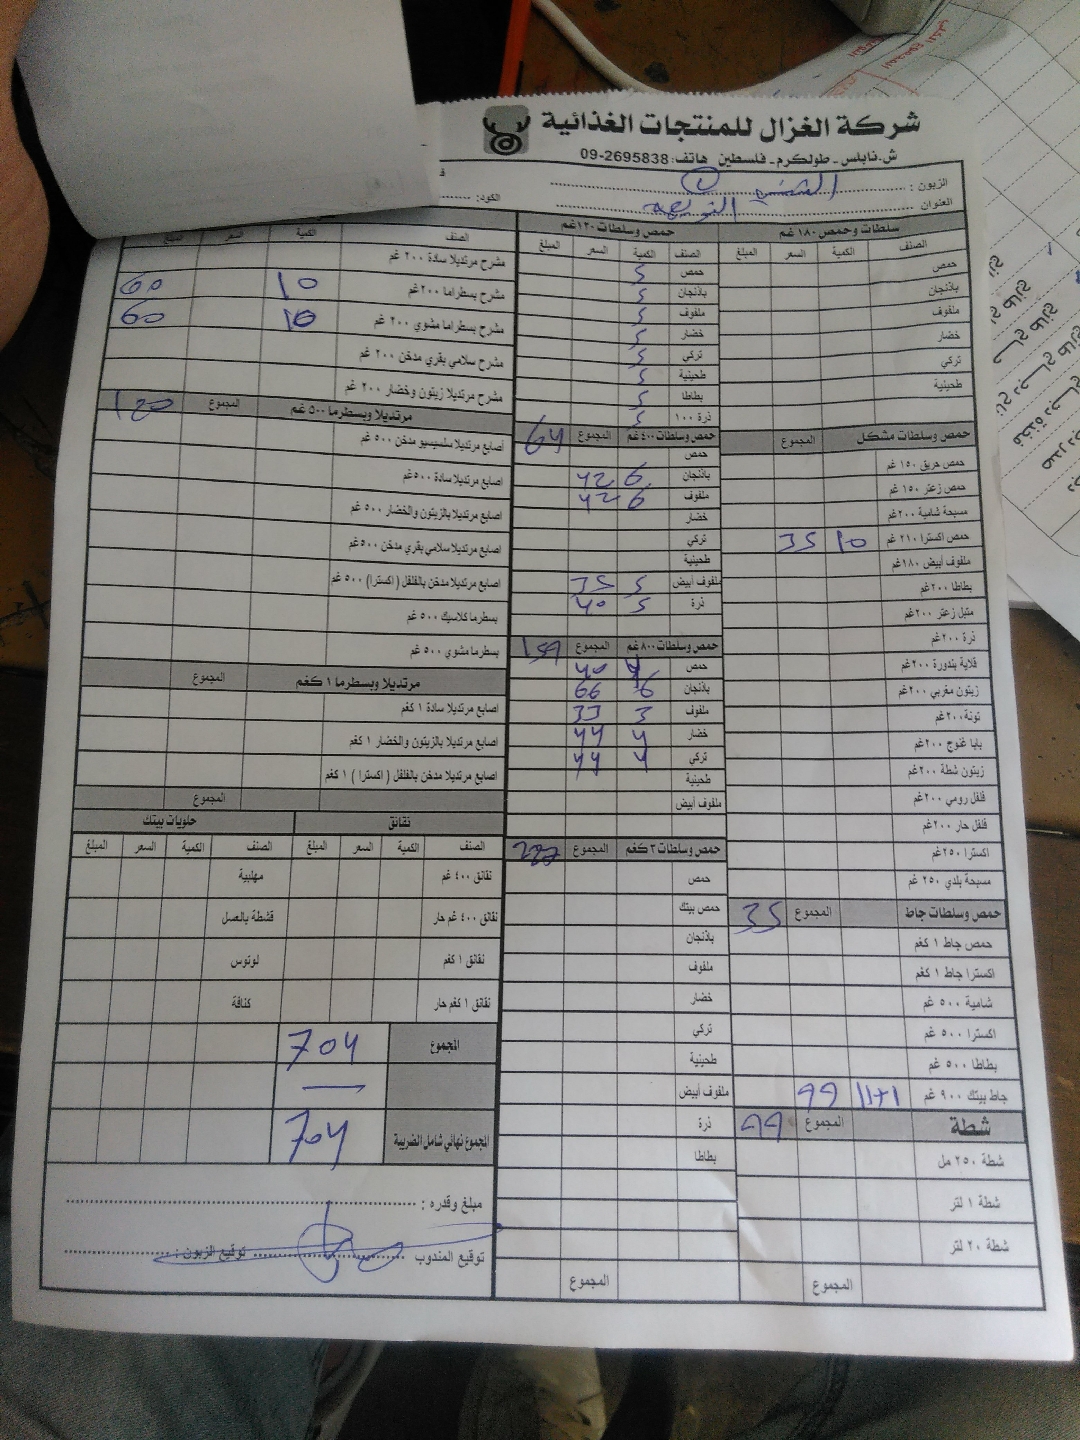 شركة الغزال للمنتجات الغذائية
ش.نابلس - طولكرم - فلسطين هاتف: 09-2695838
الزبون :
العنوان
الكود:
سلطات وحمص ١٨٠ غم
الصنف الكمية السعر المبلغ
حمص
باذنجان
ملفوف
خضار
تركي
طحينية
حمص وسلطات مشكل المجموع
حمص حريق ١٥٠ غم
حمص زعتر ١٥٠ غم
مسبحة شامية ٢٠٠غم
حمص اكسترا ٢١٠ غم 10 35
ملفوف أبيض ١٨٠غم
بطاطا ٢٠٠غم
متبل زعتر ٢٠٠غم
ذرة ٢٠٠غم
قلاية بندورة ٢٠٠غم
زيتون مغربي ٢٠٠غم
تونة ٢٠٠غم
بابا غنوج ٢٠٠غم
زيتون شطة ٢٠٠غم
فلفل رومي ٢٠٠غم
فلفل حار ٢٠٠غم
اكسترا ٢٥٠غم
مسبحة بلدي ٢٥٠ غم
حمص وسلطات جاط المجموع 35
حمص جاط ١ كغم
اكسترا جاط ١ كغم
شامية ٥٠٠ غم
اكسترا ٥٠٠ غم
بطاطا ٥٠٠ غم
جاط بيتك ٩٠٠ غم 11+1 99
شطة المجموع 99
شطة ٢٥٠ مل
شطة ١ لتر
شطة ٢٠ لتر
المجموع
حمص وسلطات ١٢٠غم
الصنف الكمية السعر المبلغ
حمص
باذنجان
ملفوف
خضار
تركي
طحينية
بطاطا
ذرة ١٠٠
حمص وسلطات ٤٠٠ غم المجموع 64
حمص
باذنجان 6 42
ملفوف 6 42
خضار
تركي
طحينية
ملفوف أبيض 5 35
ذرة 5 40
حمص وسلطات ٨٠٠غم المجموع 159
حمص 40
باذنجان 6 66
ملفوف 3 33
خضار 4 44
تركي 4 44
طحينية
ملفوف أبيض
حمص وسلطات ٣كغم المجموع
حمص
حمص بيتك
باذنجان
ملفوف
خضار
تركي
طحينية
ملفوف أبيض
ذرة
بطاطا
المجموع
الصنف الكمية السعر المبلغ
مشرح مرتديلا سادة ٢٠٠ غم
مشرح بسطراما ٢٠٠غم 10 60
مشرح بسطراما مشوي ٢٠٠ غم 10 60
مشرح سلامي بقري مدخن ٢٠٠ غم
مشرح مرتديلا زيتون وخضار ٢٠٠ غم
مرتديلا وبسطرما ٥٠٠ غم المجموع 120
اصابع مرتديلا سلميسيو مدخن ٥٠٠ غم
اصابع مرتديلا سادة ٥٠٠غم
اصابع مرتديلا بالزيتون والخضار ٥٠٠ غم
اصابع مرتديلا سلامي بقري مدخن ٥٠٠غم
اصابع مرتديلا مدخن بالفلفل (اكسترا) ٥٠٠ غم
بسطرما كلاسيك ٥٠٠ غم
بسطرما مشوي ٥٠٠ غم
مرتديلا وبسطرما ١ كغم المجموع
اصابع مرتديلا سادة ١ كغم
اصابع مرتديلا بالزيتون والخضار ١ كغم
اصابع مرتديلا مدخن بالفلفل ( اكسترا ) ١ كغم
المجموع
نقانق حلويات بيتك
الصنف الكمية السعر المبلغ الصنف الكمية السعر المبلغ
نقانق ٤٠٠ غم مهلبية
نقانق ٤٠٠ غم حار قشطة بالعسل
نقانق ١ كغم لوتوس
نقانق ١ كغم حار كنافة
المجموع 704
المجموع نهائي شامل الضريبة 704
مبلغ وقدره :
توقيع المندوب توقيع الزبون :